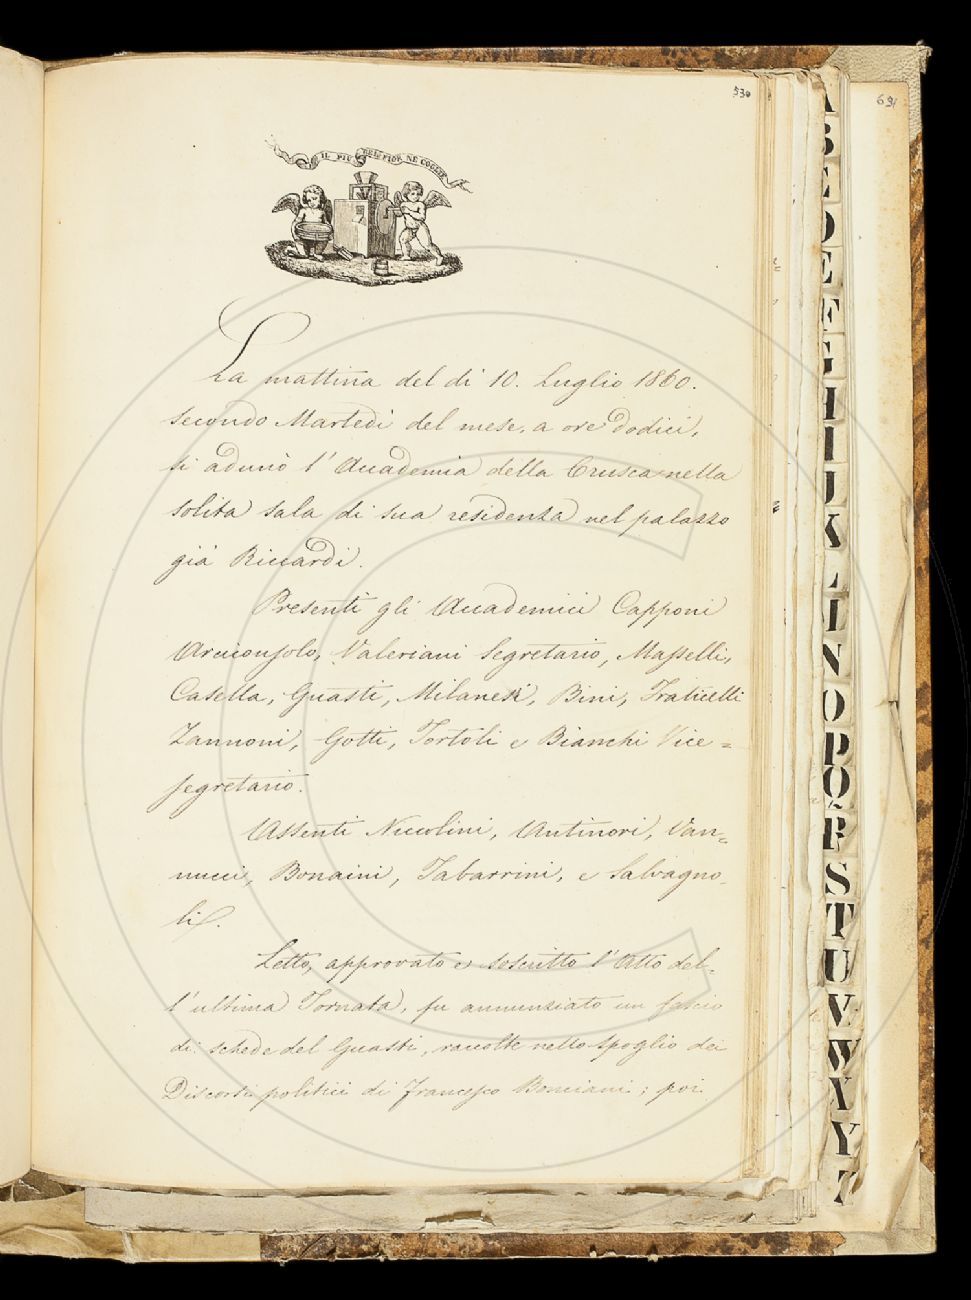 530
691
IL PIÙ BEL FIOR NE COGLIE
La mattina del dì 10. Luglio 1860.
secondo Martedì del mese, a ore dodici,
si adunò l'Accademia della Crusca nella
solita sala di sua residenza nel palazzo
già Riccardi.
Presenti gli Accademici Capponi
Arciconsolo, Valeriani Segretario, Masselli,
Casella, Guasti, Milanesi, Bini, Fraticelli
Zannoni, Gotti, Tortoli e Bianchi Vice=
segretario.
Assenti Niccolini, Antinori, Van=
nucci, Bonaini, Tabarrini, e Salvagno
li.
Letto, approvato e soscritto l'Atto del=
l'ultima Tornata, fu annunziato un fascio
di schede del Guasti, raccolte nello spoglio dei
Discorsi politici di Francesco Bonciani; poi
A
B
C
D
E
F
G
H
I
J
K
L
M
N
O
P
Q
R
S
T
U
V
W
X
Y
Z